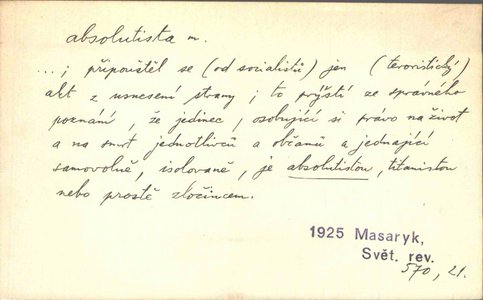 absolutista m.
...; připouštěl se (od socialistů) jen (teroristický)
akt z usnesení strany; to prýští ze správného
poznání, že jedinec, osobující si právo na život
a na smrt jednotlivců a občanů a jednající
samovolně, isolovaně, je absolutistou, titanistou
nebo prostě zločincem.
1925 Masaryk,
Svět. rev.
570, 21.